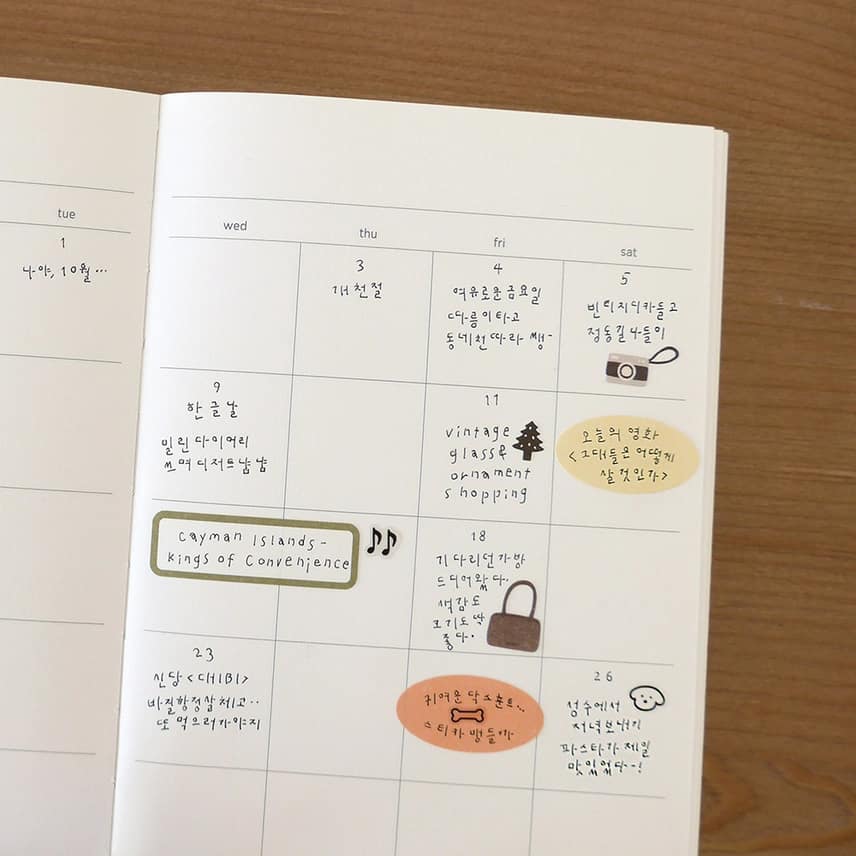 tue
wed
thu
fri
sat
1
나야, 10월...
3
개천절
4
여유로운 금요일
따릉이 타고
동네천 따라 쌩-
5
빈티지 디카 들고
정동길 나들이
9
한글날
밀린 다이어리
쓰며 디저트 냠냠
11
vintage
glass&
ornament
shopping
오늘의 영화
<그대들은 어떻게
살 것인가>
Cayman Islands-
Kings of Convenience
18
기다리던 가방
드디어 왔다.
색감도
크기도 딱
좋다.
23
신당 <대비>
바질항정살 최고..
또 먹으러 가야지
귀여운 닥스훈트...
스티커 만들까
26
성수에서
저녁 보내기
파스타가 제일
맛있었다..!